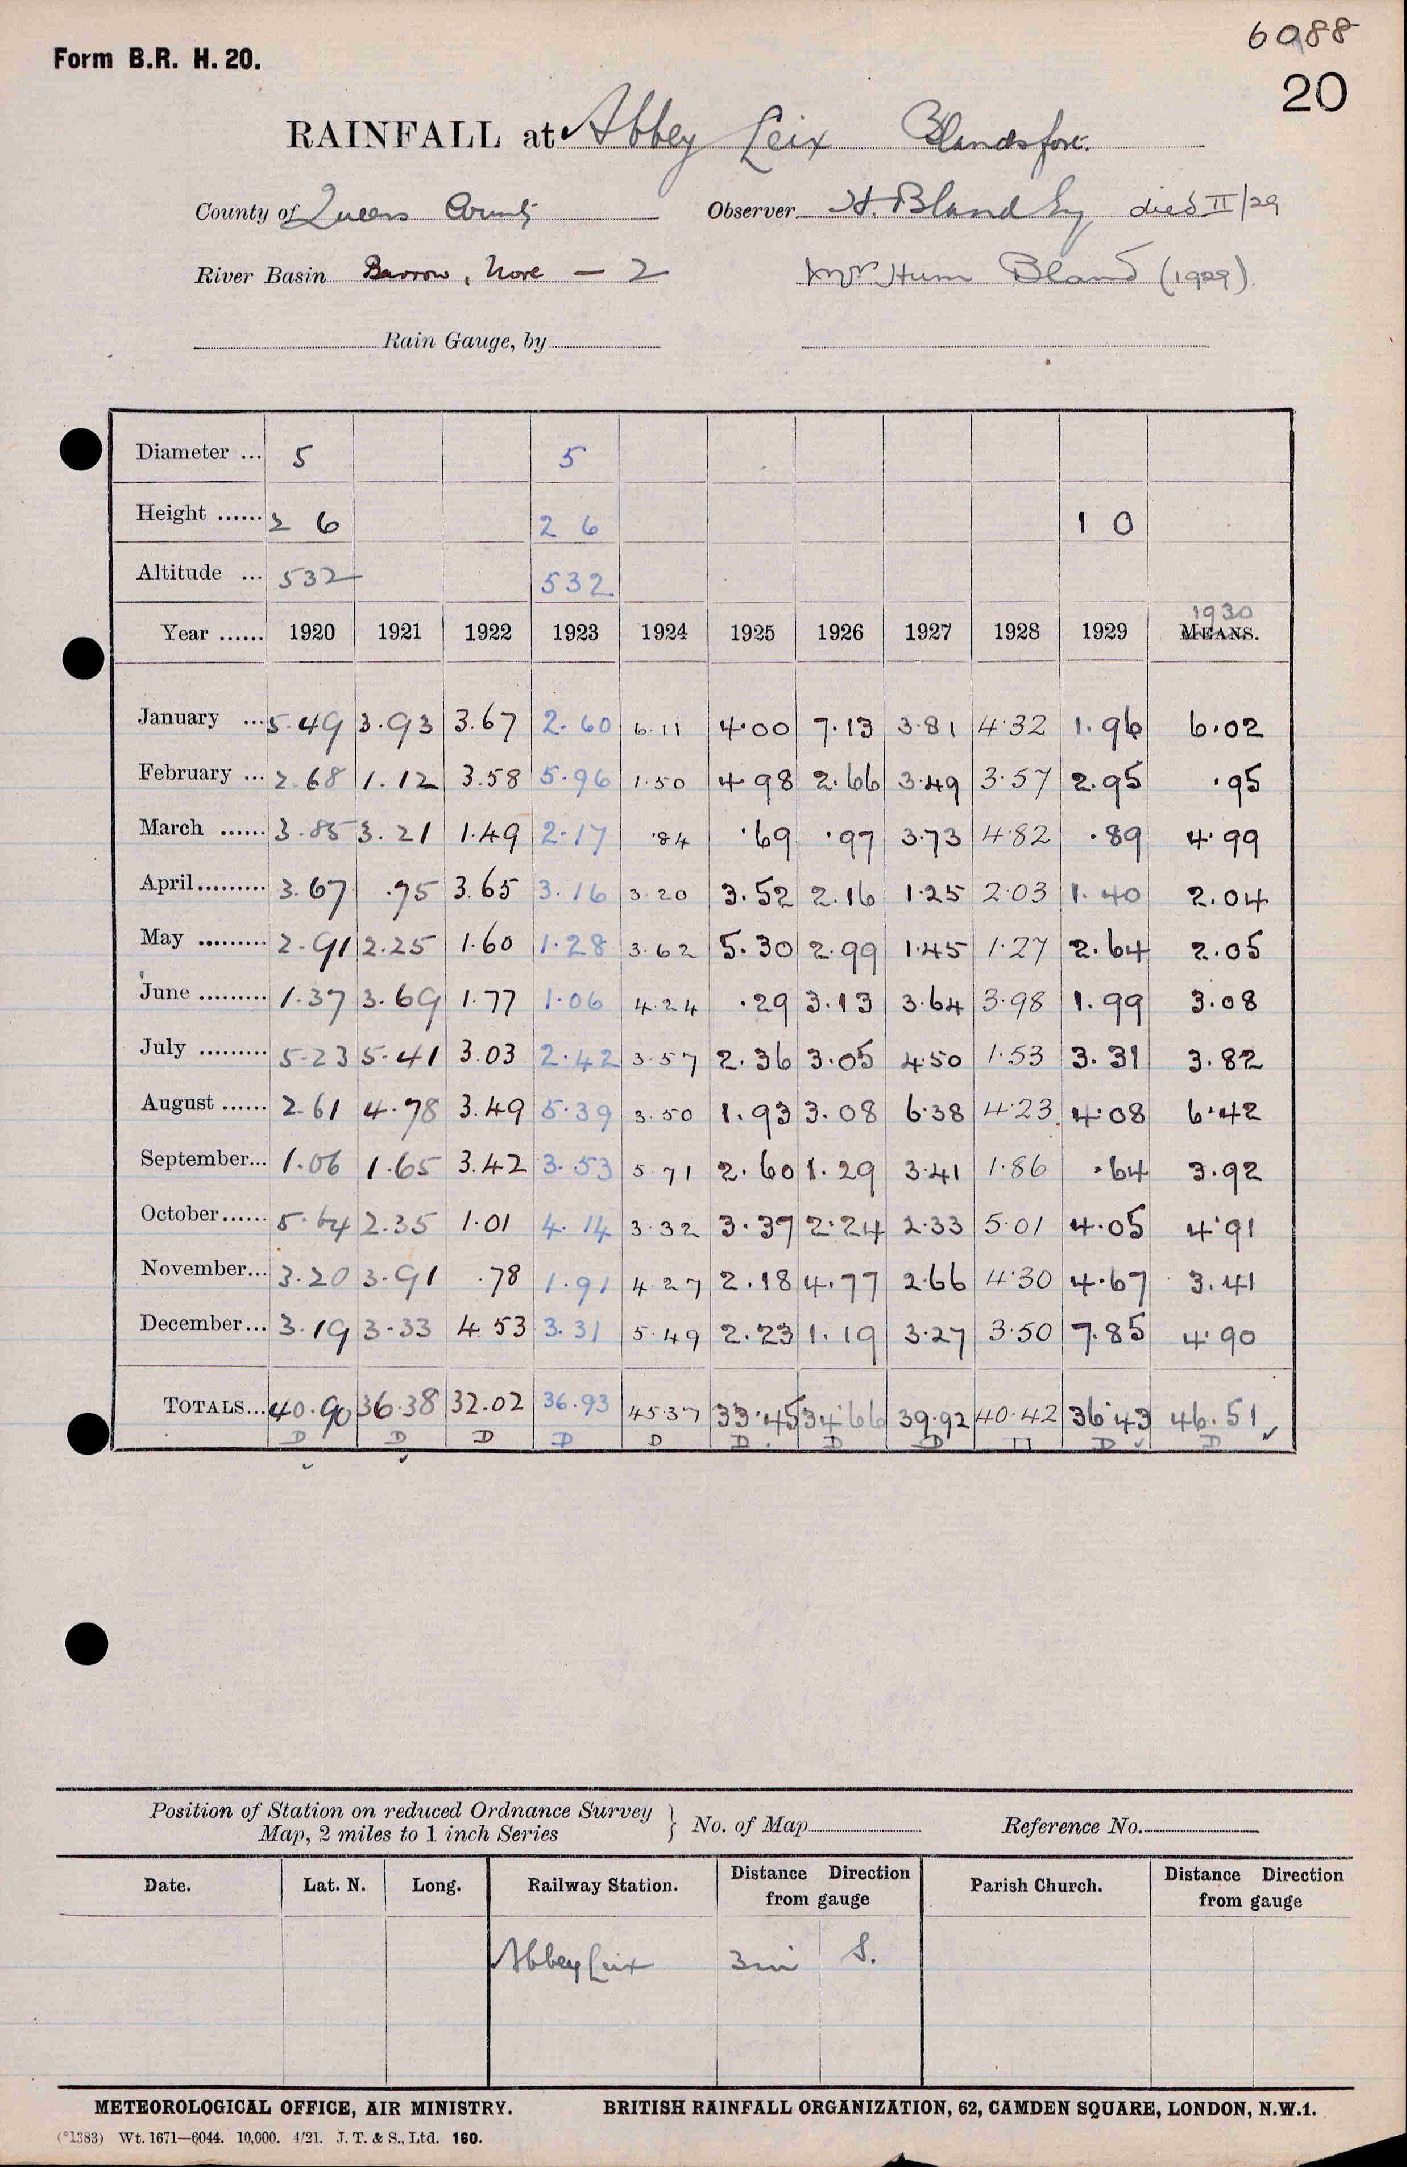 6088
Form B.R. H. 20.
20
RAINFALL at Abbey Leix Blandsfort.
County of Queens County Observer H. Bland Esq died II/29
River Basin Barrow, Nore — 2 Mr Hum Bland (1929)
Rain Gauge, by
Diameter ... 5 5
Height ...... 2 6 2 6 1 0
Altitude ... 532 532
1930
Year ...... 1920 1921 1922 1923 1924 1925 1926 1927 1928 1929 MEANS.
January ... 5.49 3.93 3.67 2.60 6.11 4.00 7.13 3.81 4.32 1.96 6.02
February ... 2.68 1.12 3.58 5.96 1.50 4.98 2.66 3.49 3.57 2.95 .95
March ...... 3.85 3.21 1.49 2.17 .84 .69 .97 3.73 4.82 .89 4.99
April......... 3.67 .75 3.65 3.16 3.20 3.52 2.16 1.25 2.03 1.40 2.04
May ......... 2.91 2.25 1.60 1.28 3.62 5.30 2.99 1.45 1.27 2.64 2.05
June ......... 1.37 3.69 1.77 1.06 4.24 .29 3.13 3.64 3.98 1.99 3.08
July ......... 5.23 5.41 3.03 2.42 3.57 2.36 3.05 4.50 1.53 3.31 3.82
August ...... 2.61 4.78 3.49 5.39 3.50 1.93 3.08 6.38 4.23 4.08 6.42
September... 1.06 1.65 3.42 3.53 5.71 2.60 1.29 3.41 1.86 .64 3.92
October...... 5.64 2.35 1.01 4.14 3.32 3.37 2.24 2.33 5.01 4.05 4.91
November... 3.20 3.91 .78 1.91 4.27 2.18 4.77 2.66 4.30 4.67 3.41
December... 3.19 3.33 4.53 3.31 5.49 2.23 1.19 3.27 3.50 7.85 4.90
TOTALS... 40.90 36.38 32.02 36.93 45.37 33.45 34.66 39.92 40.42 36.43 46.51
D D D D D D D D D D
Position of Station on reduced Ordnance Survey
Map, 2 miles to 1 inch Series } No. of Map Reference No.
Date. Lat. N. Long. Railway Station. Distance Direction from gauge Parish Church. Distance Direction from gauge
Abbey Leix 3 mi S.
METEOROLOGICAL OFFICE, AIR MINISTRY. BRITISH RAINFALL ORGANIZATION, 62, CAMDEN SQUARE, LONDON, N.W.1.
(*1383) Wt. 1671—6044. 10,000. 4/21. J. T. & S., Ltd. 160.